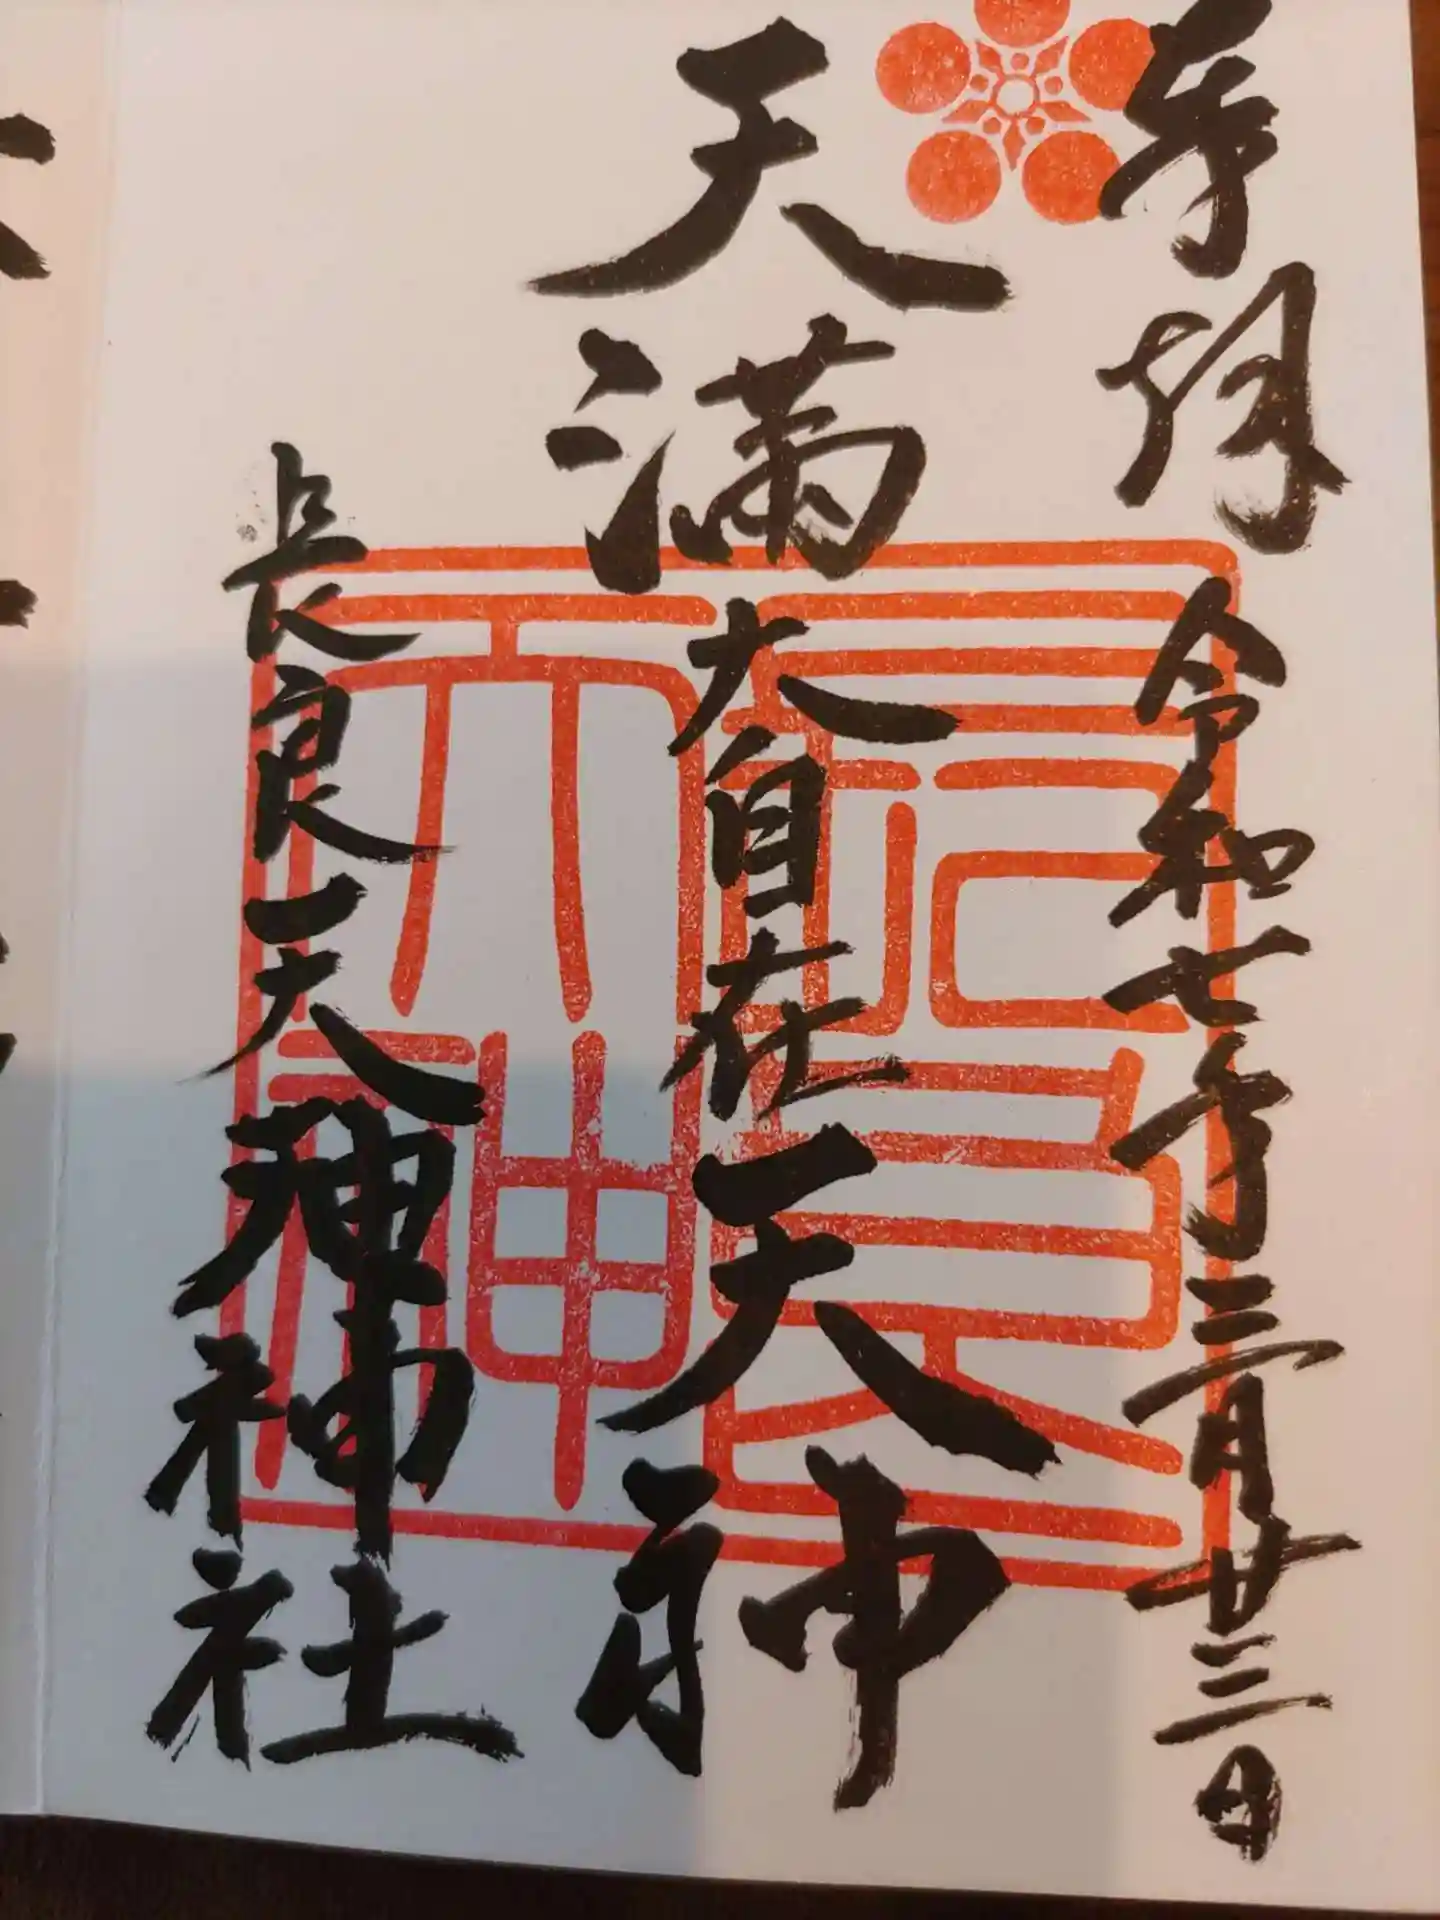 奉拝 令和七年三月廿三日
天満大自在天神
長良天神神社
長良天神